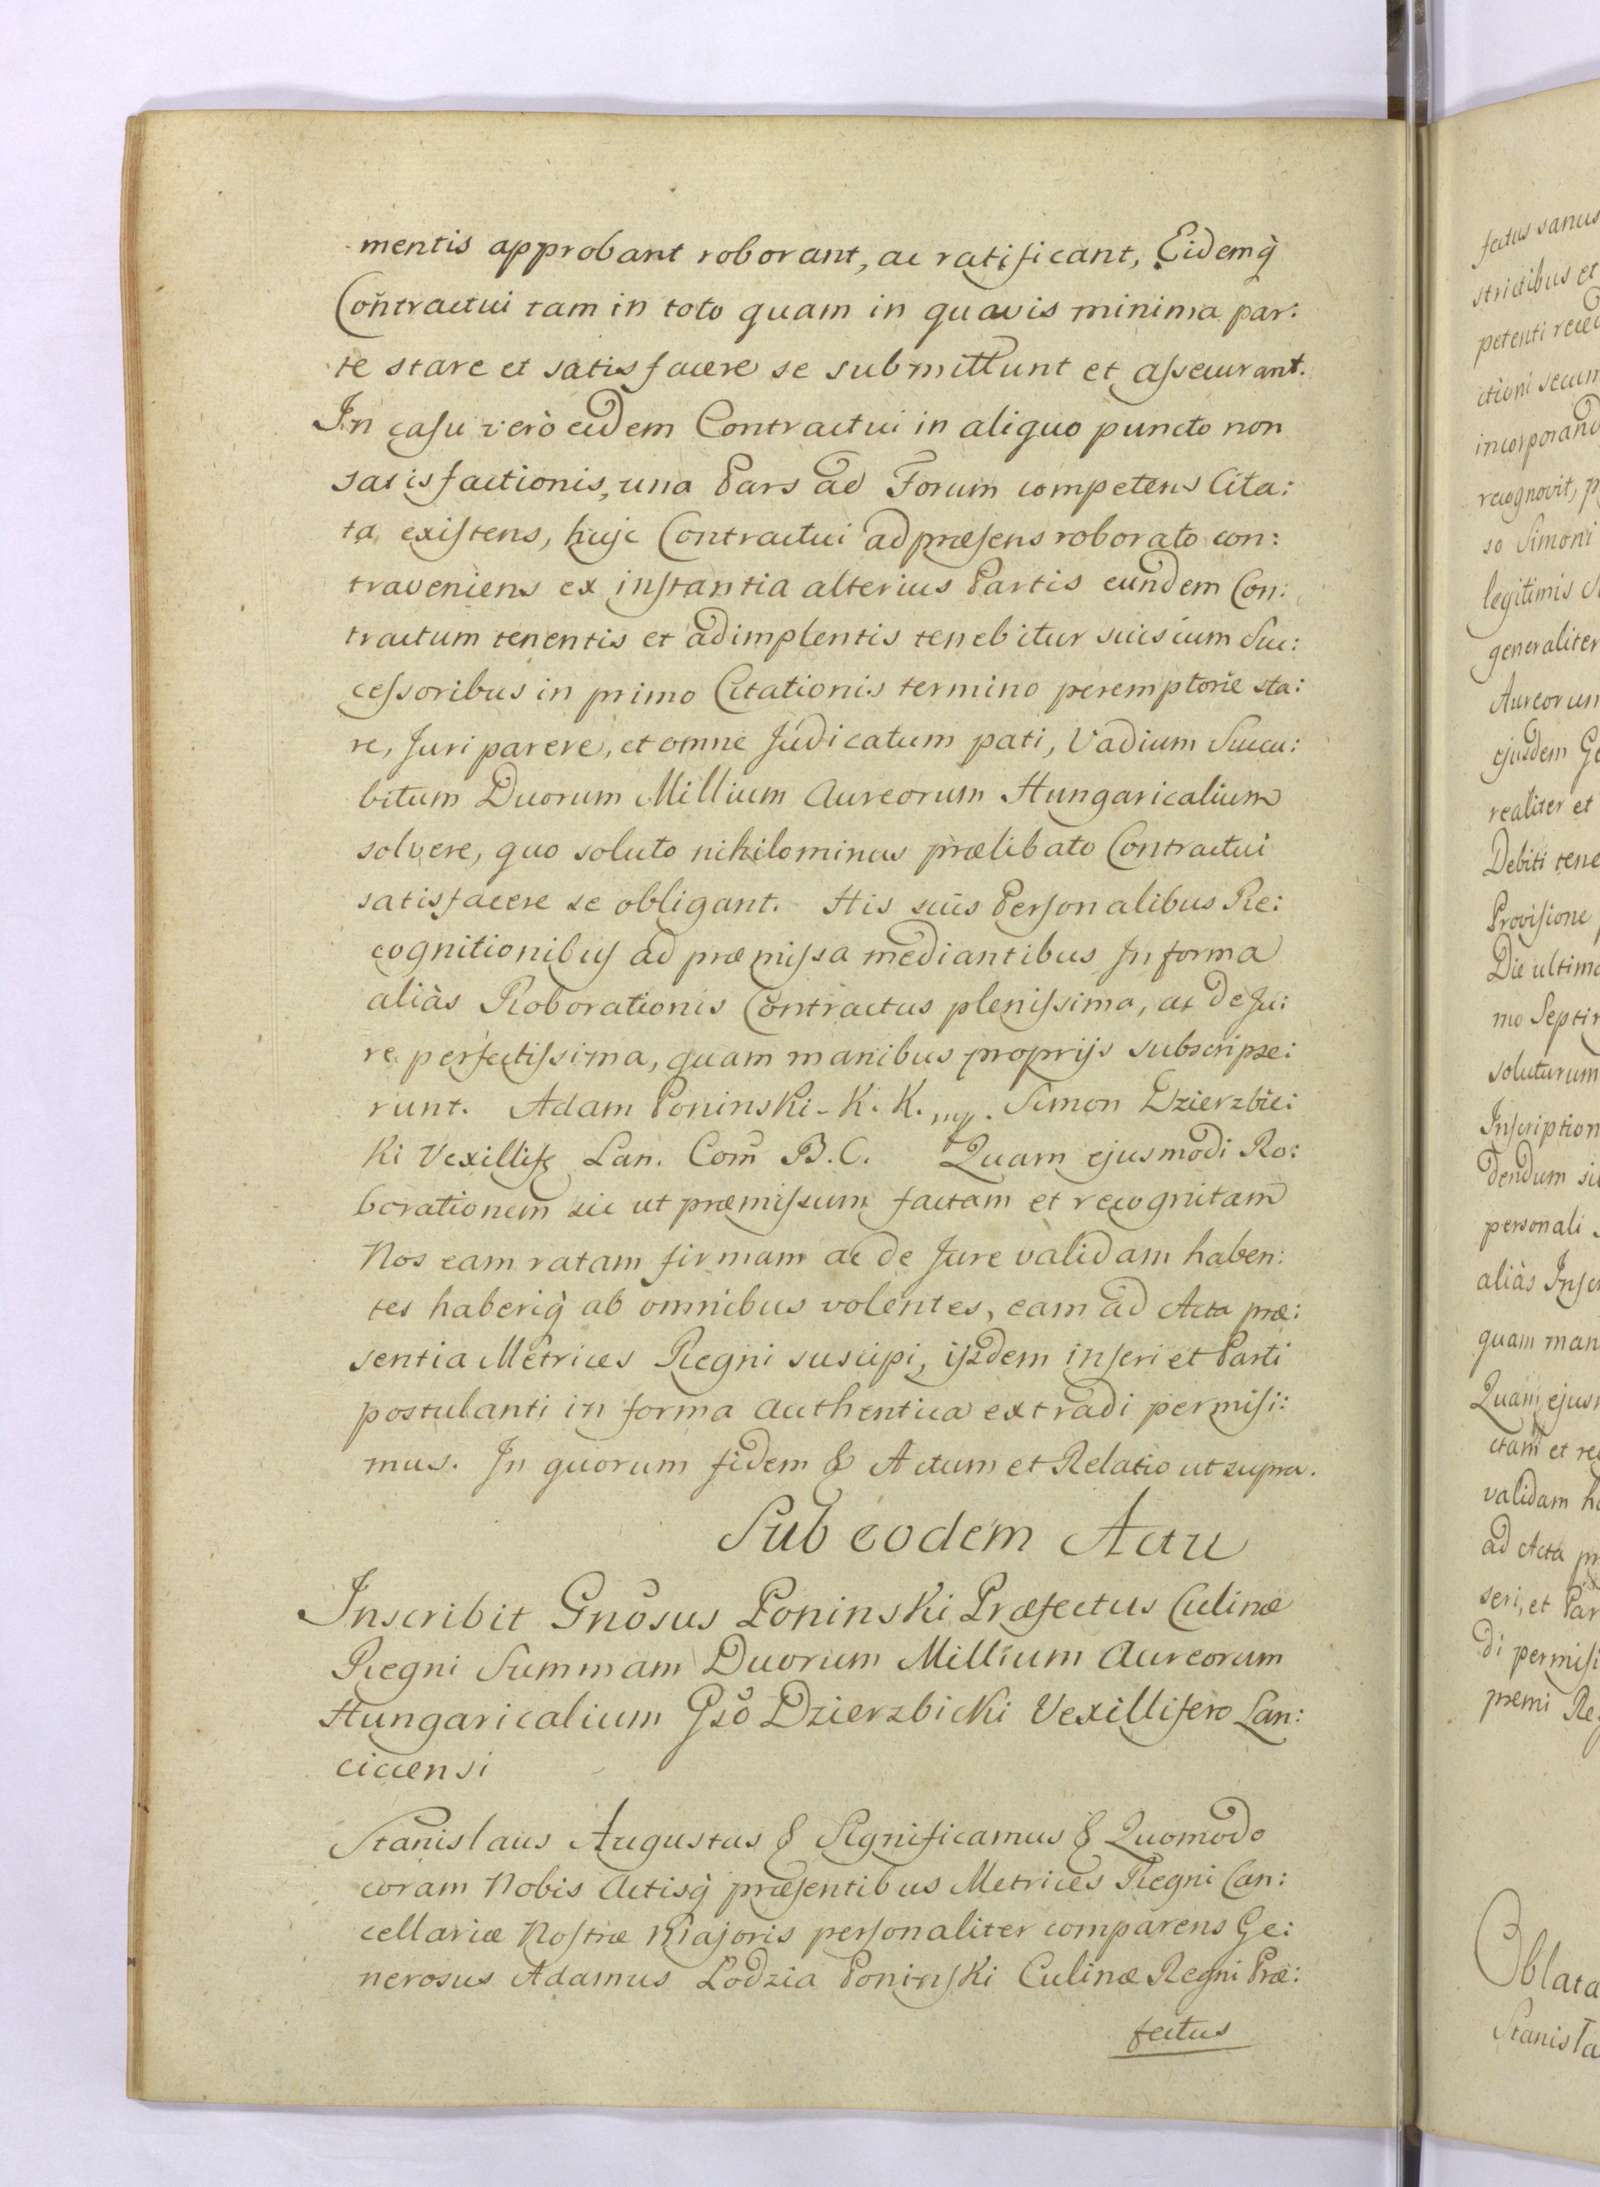 mentis approbant roborant, ac ratificant, Eidemq̀
Contractui tam in toto quam in quavis minima par:
te stare et satisfacere se submittunt et assecurant.
In casu verò eidem Contractui in aliquo puncto non
satisfactionis, una Pars ad Forum competens Cita:
ta existens, huic Contractui ad præsens roborato con:
traveniens ex instantia alterius Partis eundem Con:
tractum tenentis et adimplentis tenebitur suis cum Suc:
cessoribus in primo Citationis termino peremptorie sta:
re, Juri parere, et omne Judicatum pati, Vadium Succu:
bitum Duorum Millium Aureorum Hungaricalium
solvere, quo soluto nihilominus prælibato Contractui
satisfacere se obligant. His suis Personalibus Re:
cognitionibus ad præmissa mediantibus In forma
aliàs Roborationis Contractus plenissima, ac de Ju:
re perfectissima, quam manibus proprijs subscripse:
runt. Adam Poninski - K. K. mp. Simon Dzierzbic:
ki Vexillif. Lan. Com̃ B. C. Quam ejusmodi Ro:
borationem sic ut præmissum factam et recognitam
Nos eam ratam firmam ac de Jure validam haben:
tes haberiq̀ ab omnibus volentes, eam ad Acta præ:
sentia Metrices Regni suscipi, ijsdem inseri et Parti
postulanti in forma authentica extradi permisi:
mus. In quorum fidem & Actum et Relatio ut supra.
Sub eodem Actu
Inscribit Gnõsus Poninski Præfectus Culinæ
Regni Summam Duorum Millium Aureorum
Hungaricalium Gsõ Dzierzbicki Vexillifero Lan:
ciciensi
Stanislaus Augustus & Significamus & Quomodo
coram Nobis Actisq̀ præsentibus Metrices Regni Can:
cellariæ Nostræ Majoris personaliter comparens Ge:
nerosus Adamus Lodzia Poninski Culinæ Regni Præ:
fectus
fectus sanus
strictibus et
petenti
ctioni secun
incorporand
recognovit, p
so Simoni
legitimis
generaliter
Aureorum
ejusdem Ge
realiter et
Debiti tene
Provisione
Die ultima
mo Septin
soluturum
Inscription
dendum
personali
aliàs Inscr
quam man
Quam ejusm
ctam et re
validam ha
ad Acta pr
seri, et Par
di permisi
premi Re
Oblata
Stanisla